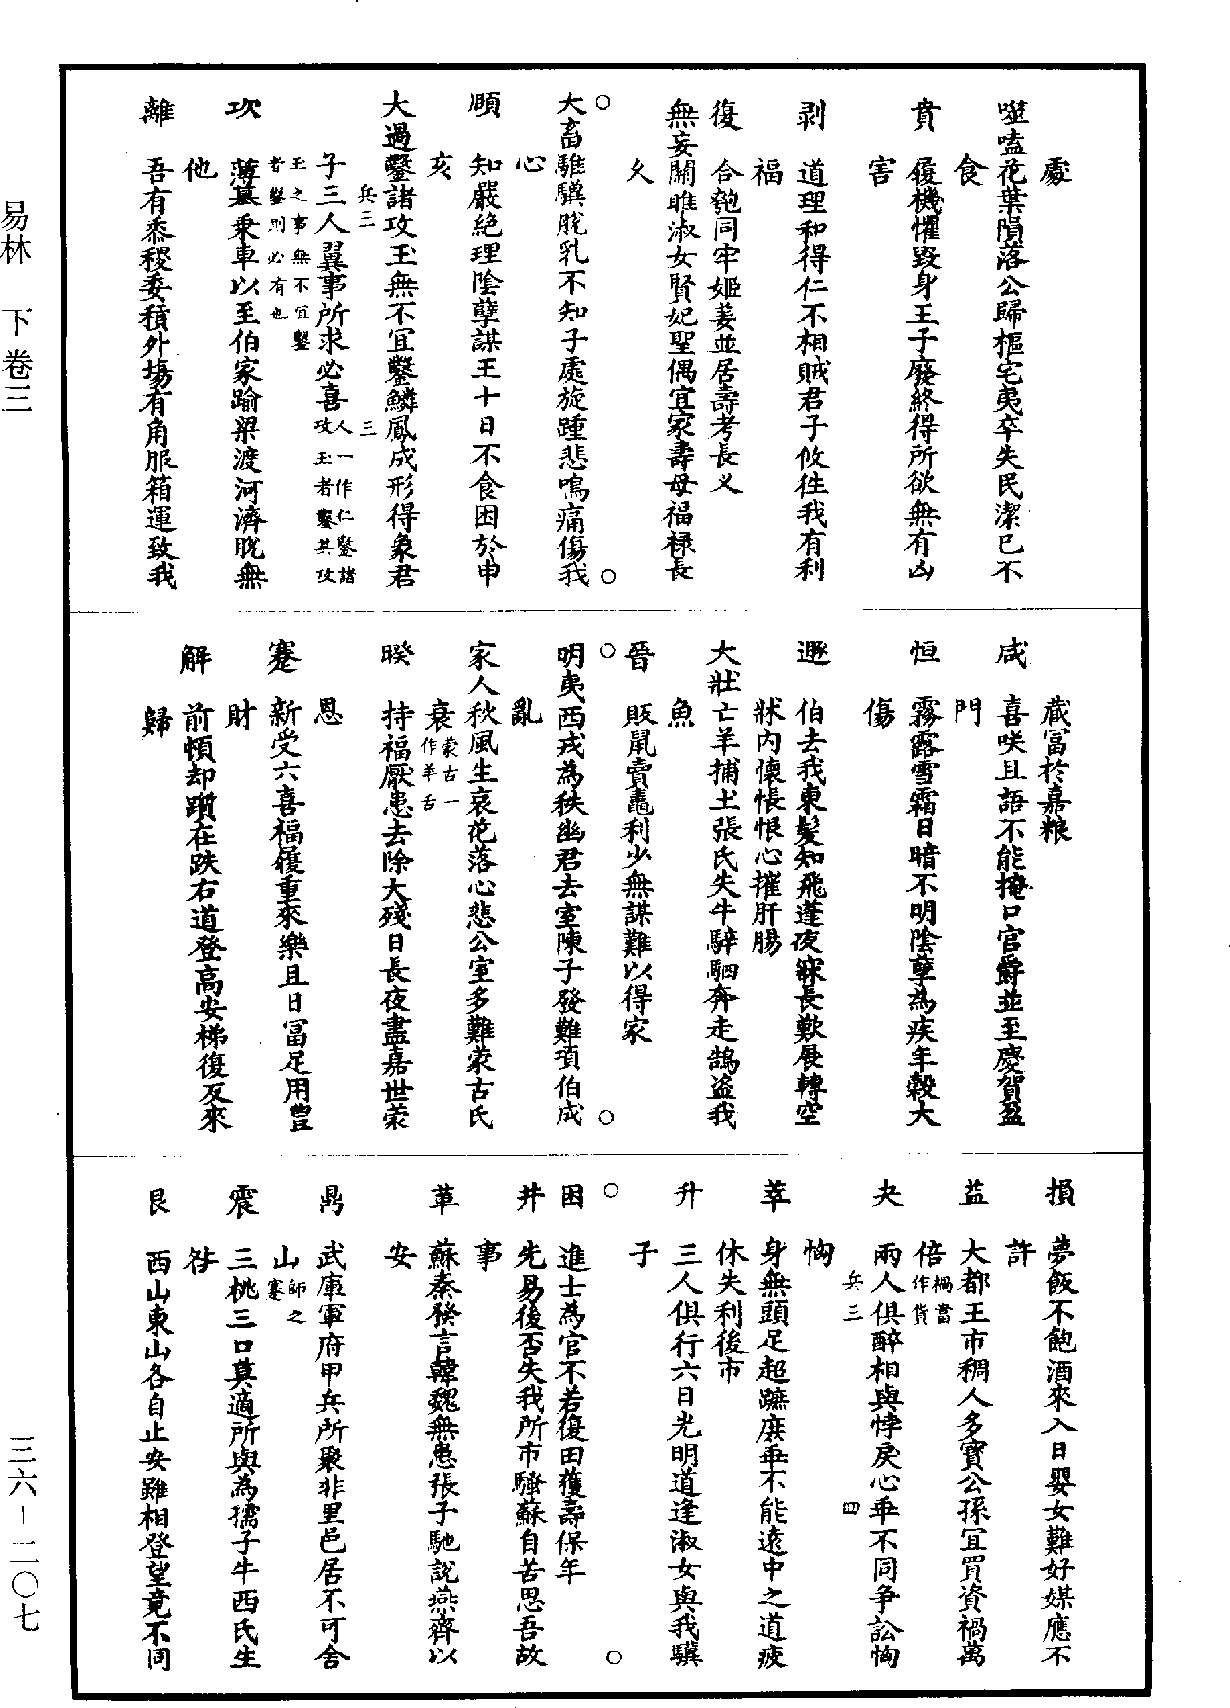 處
噬嗑花葉隕落公歸樞宅夷卒失民潔巳不
食
賁　履機懼毀身王子廢終得所欲無有凶
害
剥　道理和得仁不相賊君子攸徃我有利
福
復　合匏同牢姬姜並居壽考長乂
無妄關雎淑女賢妃聖偶宜家壽母福祿長
乆
大畜騅驥脫乳不知子處旋踵悲鳴痛傷我
心
頤　知嚴絶理陰孽謀王十日不食困於申
亥
大過鑿諸攻玉無不宜鑿鱗鳳成形得象君
兵三　三
子三人翼事所求必喜人一作仁鑿諸攻玉者鑿其攻
玉之事無不宜鑿者鑿則必有也
坎　薄暮乗車以至伯家踰梁渡河濟脫無
他
離　吾有黍稷委積外塲有角服箱運致我
藏富於嘉粮
咸　喜咲且語不能掩口官爵並至慶賀盈
門
恒　霧露雪霜日暗不明陰孽為疾年穀大
傷
遯　伯去我東髪知飛蓬夜寐長歎展轉空
牀内懷悵恨心摧肝腸
大壯亡羊捕土張氏失牛騂駟奔走鵠盗我
魚
晉　販鼠賣鼃利少無謀難以得家
明夷西戎為秩幽君去室陳子發難項伯成
亂
家人秋風生哀花落心悲公室多難蒙古氏
衰蒙古一作羊舌
睽　持福厭患去除大殘日長夜盡嘉世蒙
恩
蹇　新受六喜福履重來樂且日富足用豊
財
解　前頓却躓在跌右道登高安梯復反來
歸
損　夢飯不飽酒來入日嬰女難好媒應不
許
益　大都王市稠人多寳公孫宜買資禍萬
倍禍當作貨
夬　兩人俱醉相與悖戾心乖不同爭訟恟
恟　兵三　四
萃　身無頭足超蹠庶乖不能遠中之道疲
休失利後市
升　三人俱行六日光明道逢淑女與我驥
子
困　進士為官不若復田獲壽保年
井　先易後否失我所市騷蘇自苦思吾故
事
革　蘇秦發言韓魏無患張子馳説燕齊以
安
鼎　武庫軍府甲兵所聚非里邑居不可舍
山師之蹇
震　三桃三口莫適所與為孺子牛西氏生
咎
艮　西山東山各自止安雖相登望竟不同
易林　下卷三
三六－二〇七